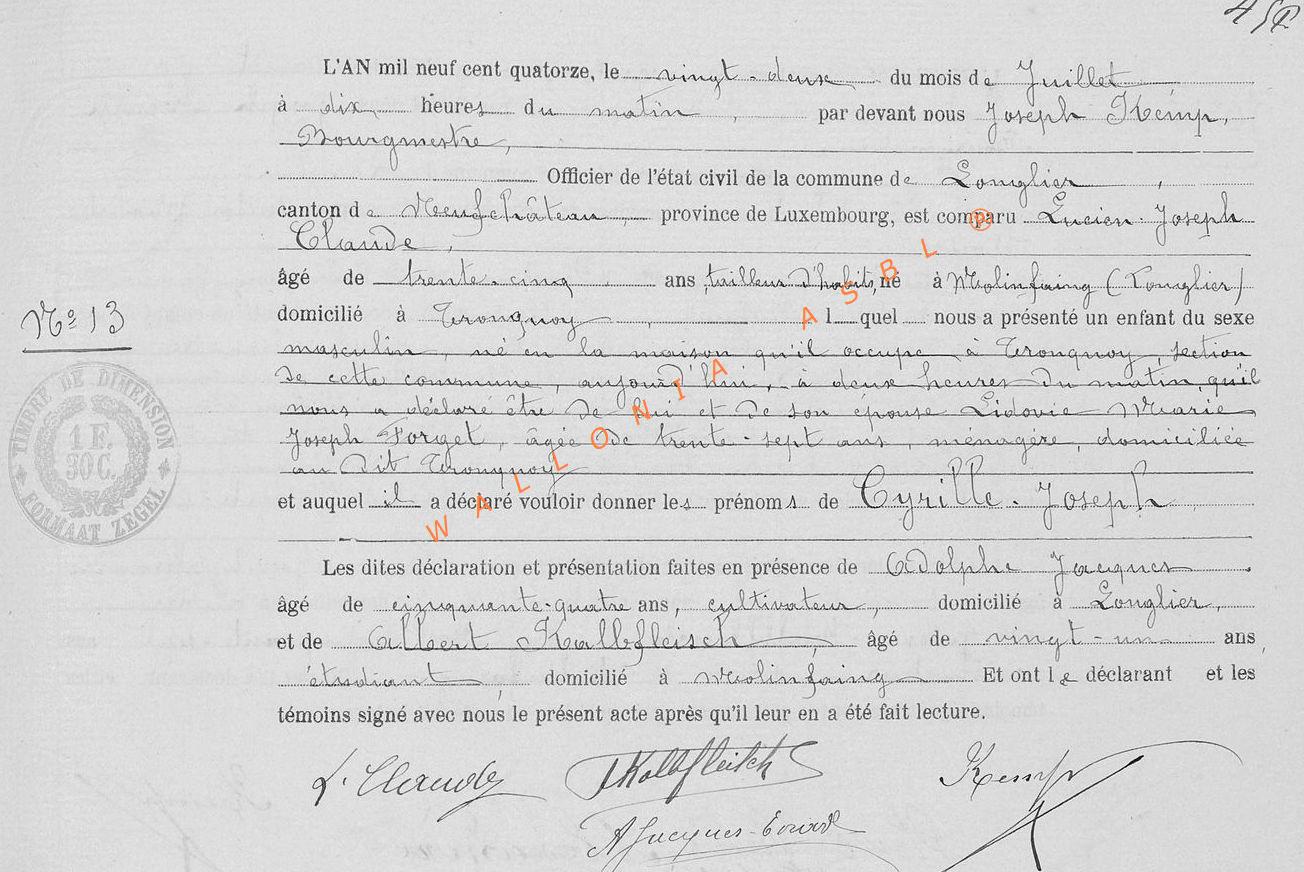 L'AN mil neuf cent quatorze, le vingt-deux du mois de Juillet
à dix heures du matin, par devant nous Joseph Kemp,
Bourgmestre,
Officier de l'état civil de la commune de Longlier,
canton de Neufchâteau, province de Luxembourg, est comparu Lucien-Joseph
Claude,
âgé de trente-cinq ans, tailleur d'habits, né à Molinfaing (Longlier)
domicilié à Tronquoy, lequel nous a présenté un enfant du sexe
masculin, né en la maison qu'il occupe à Tronquoy, section
de cette commune, aujourd'hui, à deux heures du matin, qu'il
nous a déclaré être de lui et de son épouse Lidovie Marie
Joseph Forget, âgée de trente-sept ans, ménagère, domiciliée
au Dit Tronquoy
et auquel il a déclaré vouloir donner les prénoms de Cyrille-Joseph
Les dites déclaration et présentation faites en présence de Adolphe Jacques
âgé de cinquante-quatre ans, cultivateur, domicilié à Longlier,
et de Albert Kalbfleisch, âgé de vingt-un ans,
étudiant, domicilié à Molinfaing Et ont le déclarant et les
témoins signé avec nous le présent acte après qu'il leur en a été fait lecture.
Nº 13
TIMBRE DE DIMENSION
1 F.
30 C.
FORMAAT ZEGEL
WALLONIA ASBL ®
L. Claude Kalbfleisch Kemp
A Jacques-